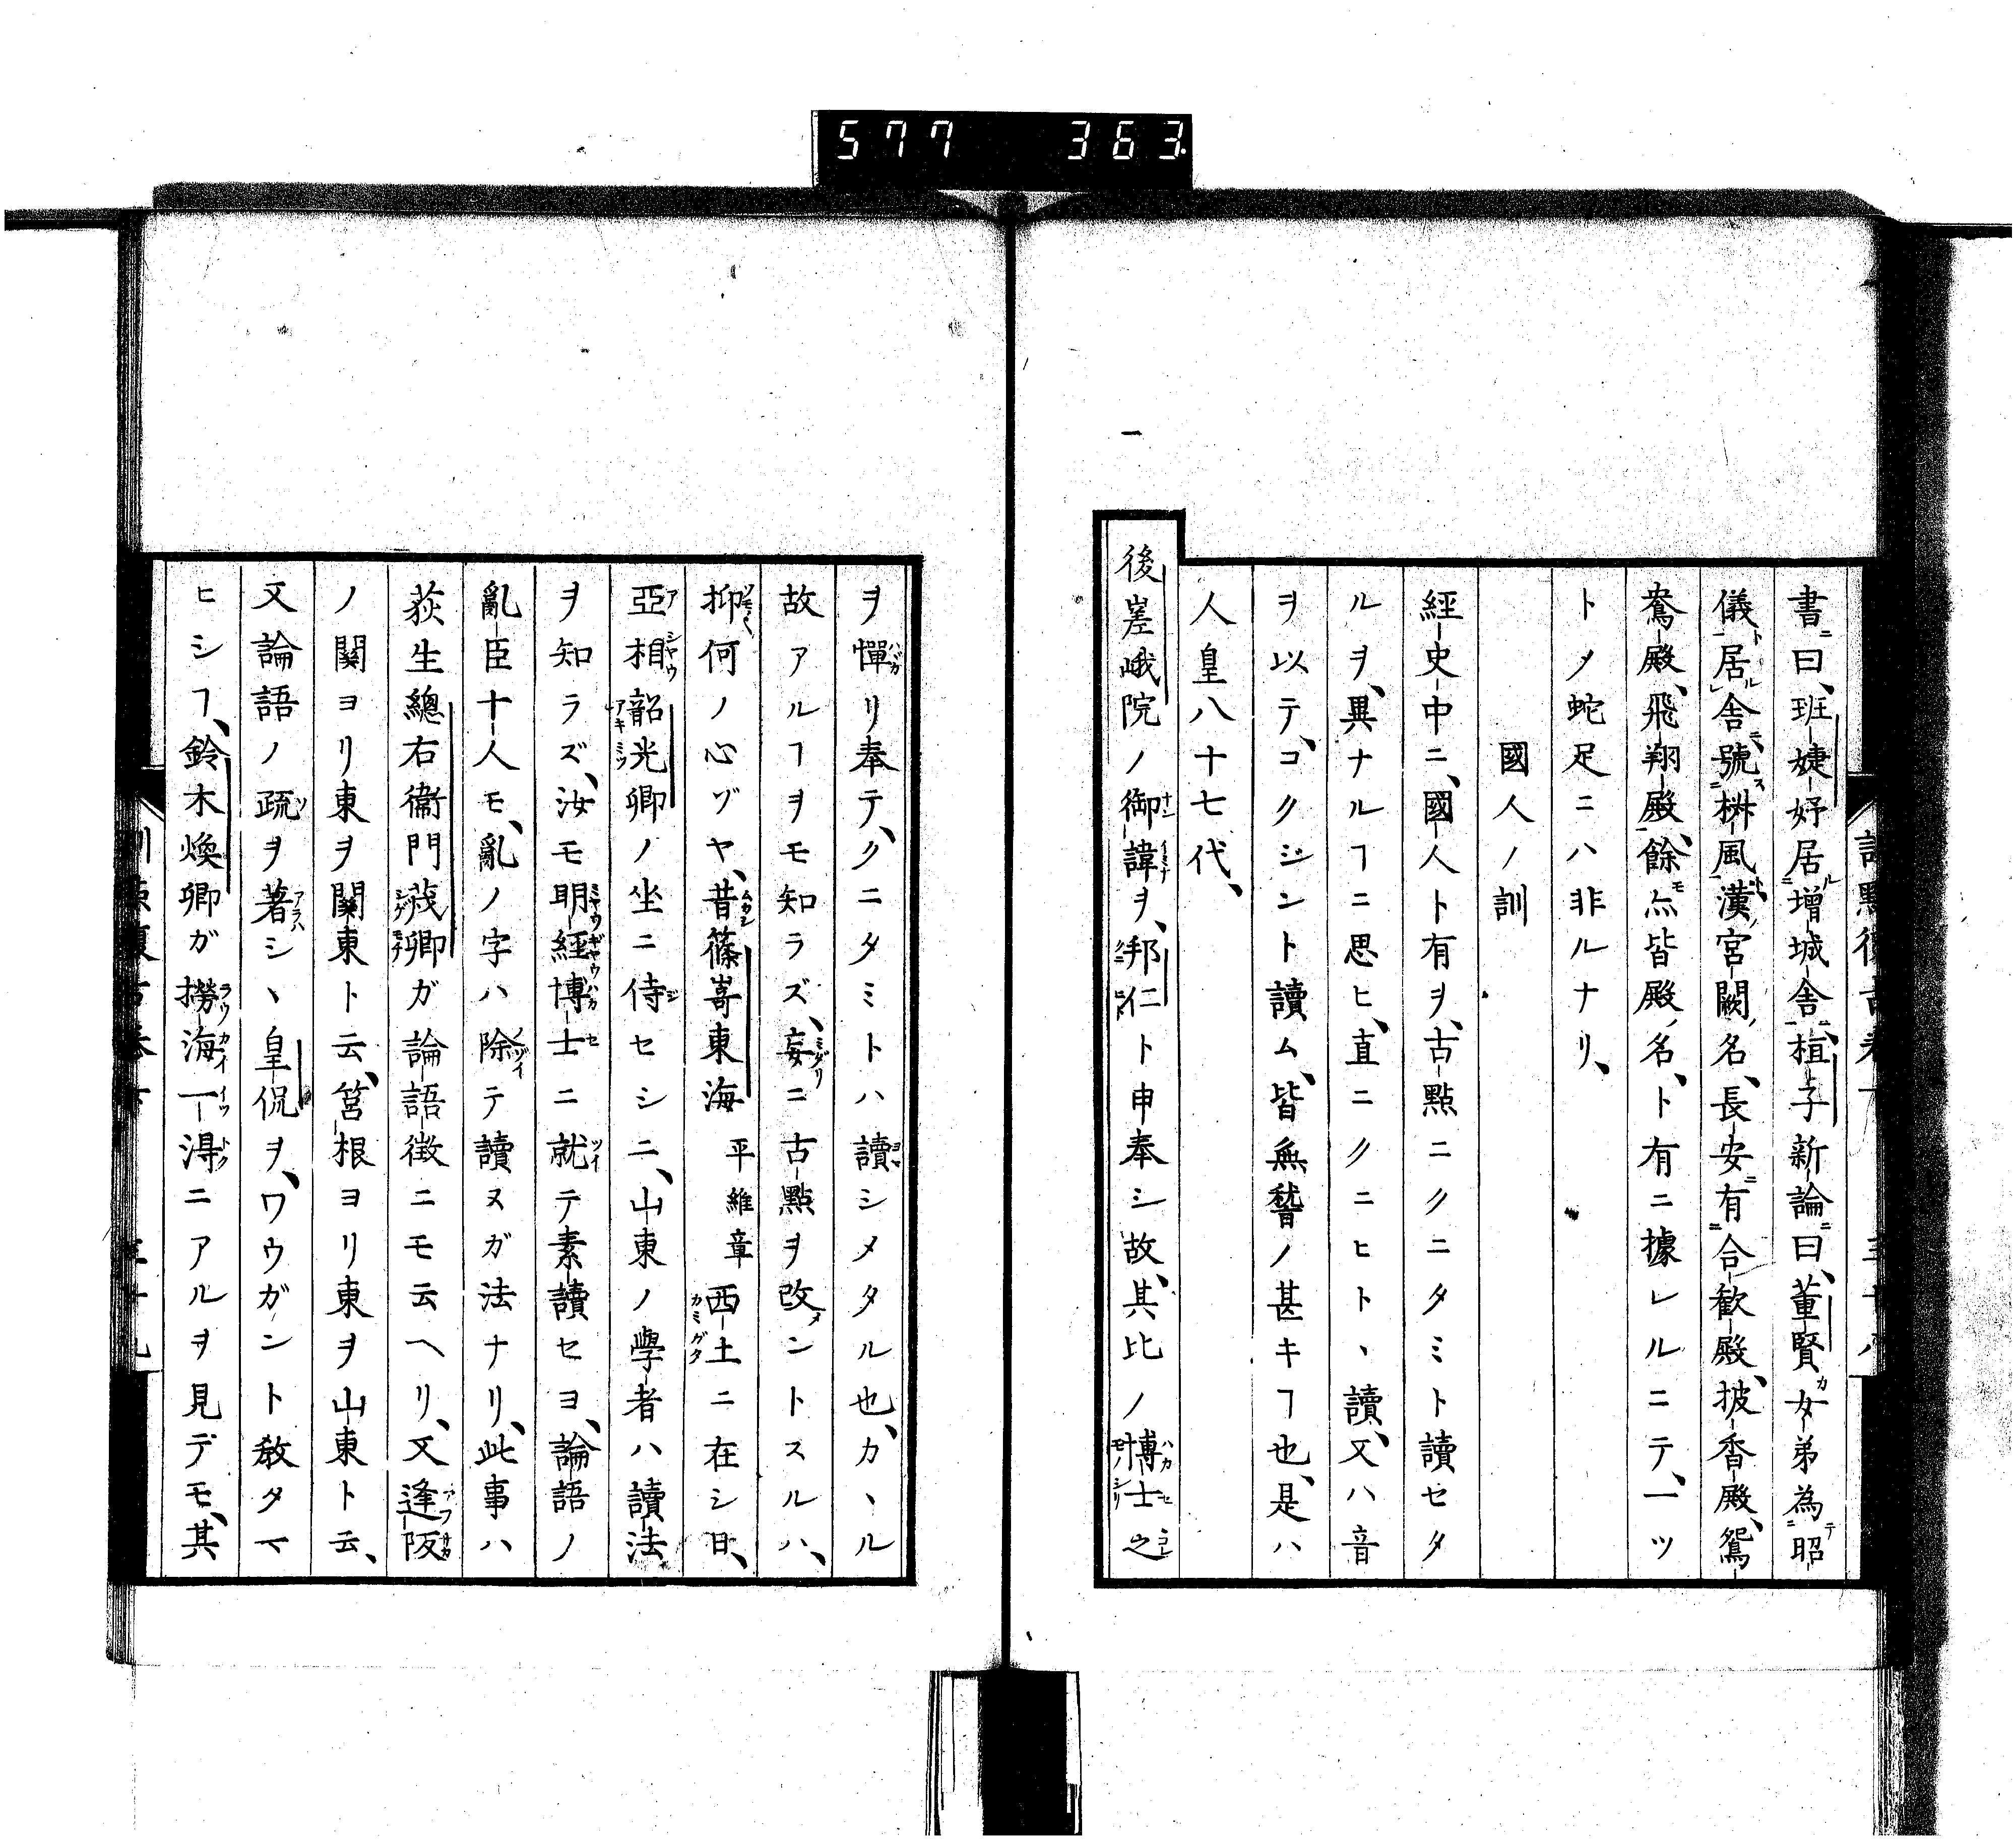 577 363
書曰、班婕妤居増城舎、桓子新論曰、董賢女弟為昭
儀、居舎號椒風、漢宮闕名、長安有合歓殿、披香殿、鴛
鴦殿、飛翔殿、餘亦皆殿名、ト有ニ據レルニテ、一ツ
トメ蛇足ニハ非ルナリ、
國人ノ訓
經史中ニ、國人ト有ヲ、古點ニクニタミト讀セタ
ルヲ、異ナルヿニ思ヒ、直ニクニヒト、讀、又ハ音
ヲ以テ、コクジント讀ム、皆無稽ノ甚キヿ也、是ハ
人皇八十七代、
後嵯峨院ノ御諱ヲ、邦仁ト申奉シ故、其比ノ博士之
ヲ憚リ奉テ、クニタミトハ讀シメタル也、カヽル
故アルヿヲモ知ラズ、妄ニ古點ヲ改ントスルハ、
抑何ノ心ゾヤ、昔篠嵜東海 平維章 西土ニ在シ日、
亞相韶光卿ノ坐ニ侍セシニ、山東ノ學者ハ讀法
ヲ知ラズ、汝モ明經博士ニ就テ素讀セヨ、論語ノ
亂臣十人モ、亂ノ字ハ除テ讀ヌガ法ナリ、此事ハ
荻生總右衞門茂卿ガ論語徴ニモ云ヘリ、又逢阪
ノ關ヨリ東ヲ關東ト云、筥根ヨリ東ヲ山東ト云、
又論語ノ疏ヲ著シヽ皇侃ヲ、ワウガント教タマ
ヒシヿ、鈴木煥卿ガ撈海一得ニアルヲ見デモ、其